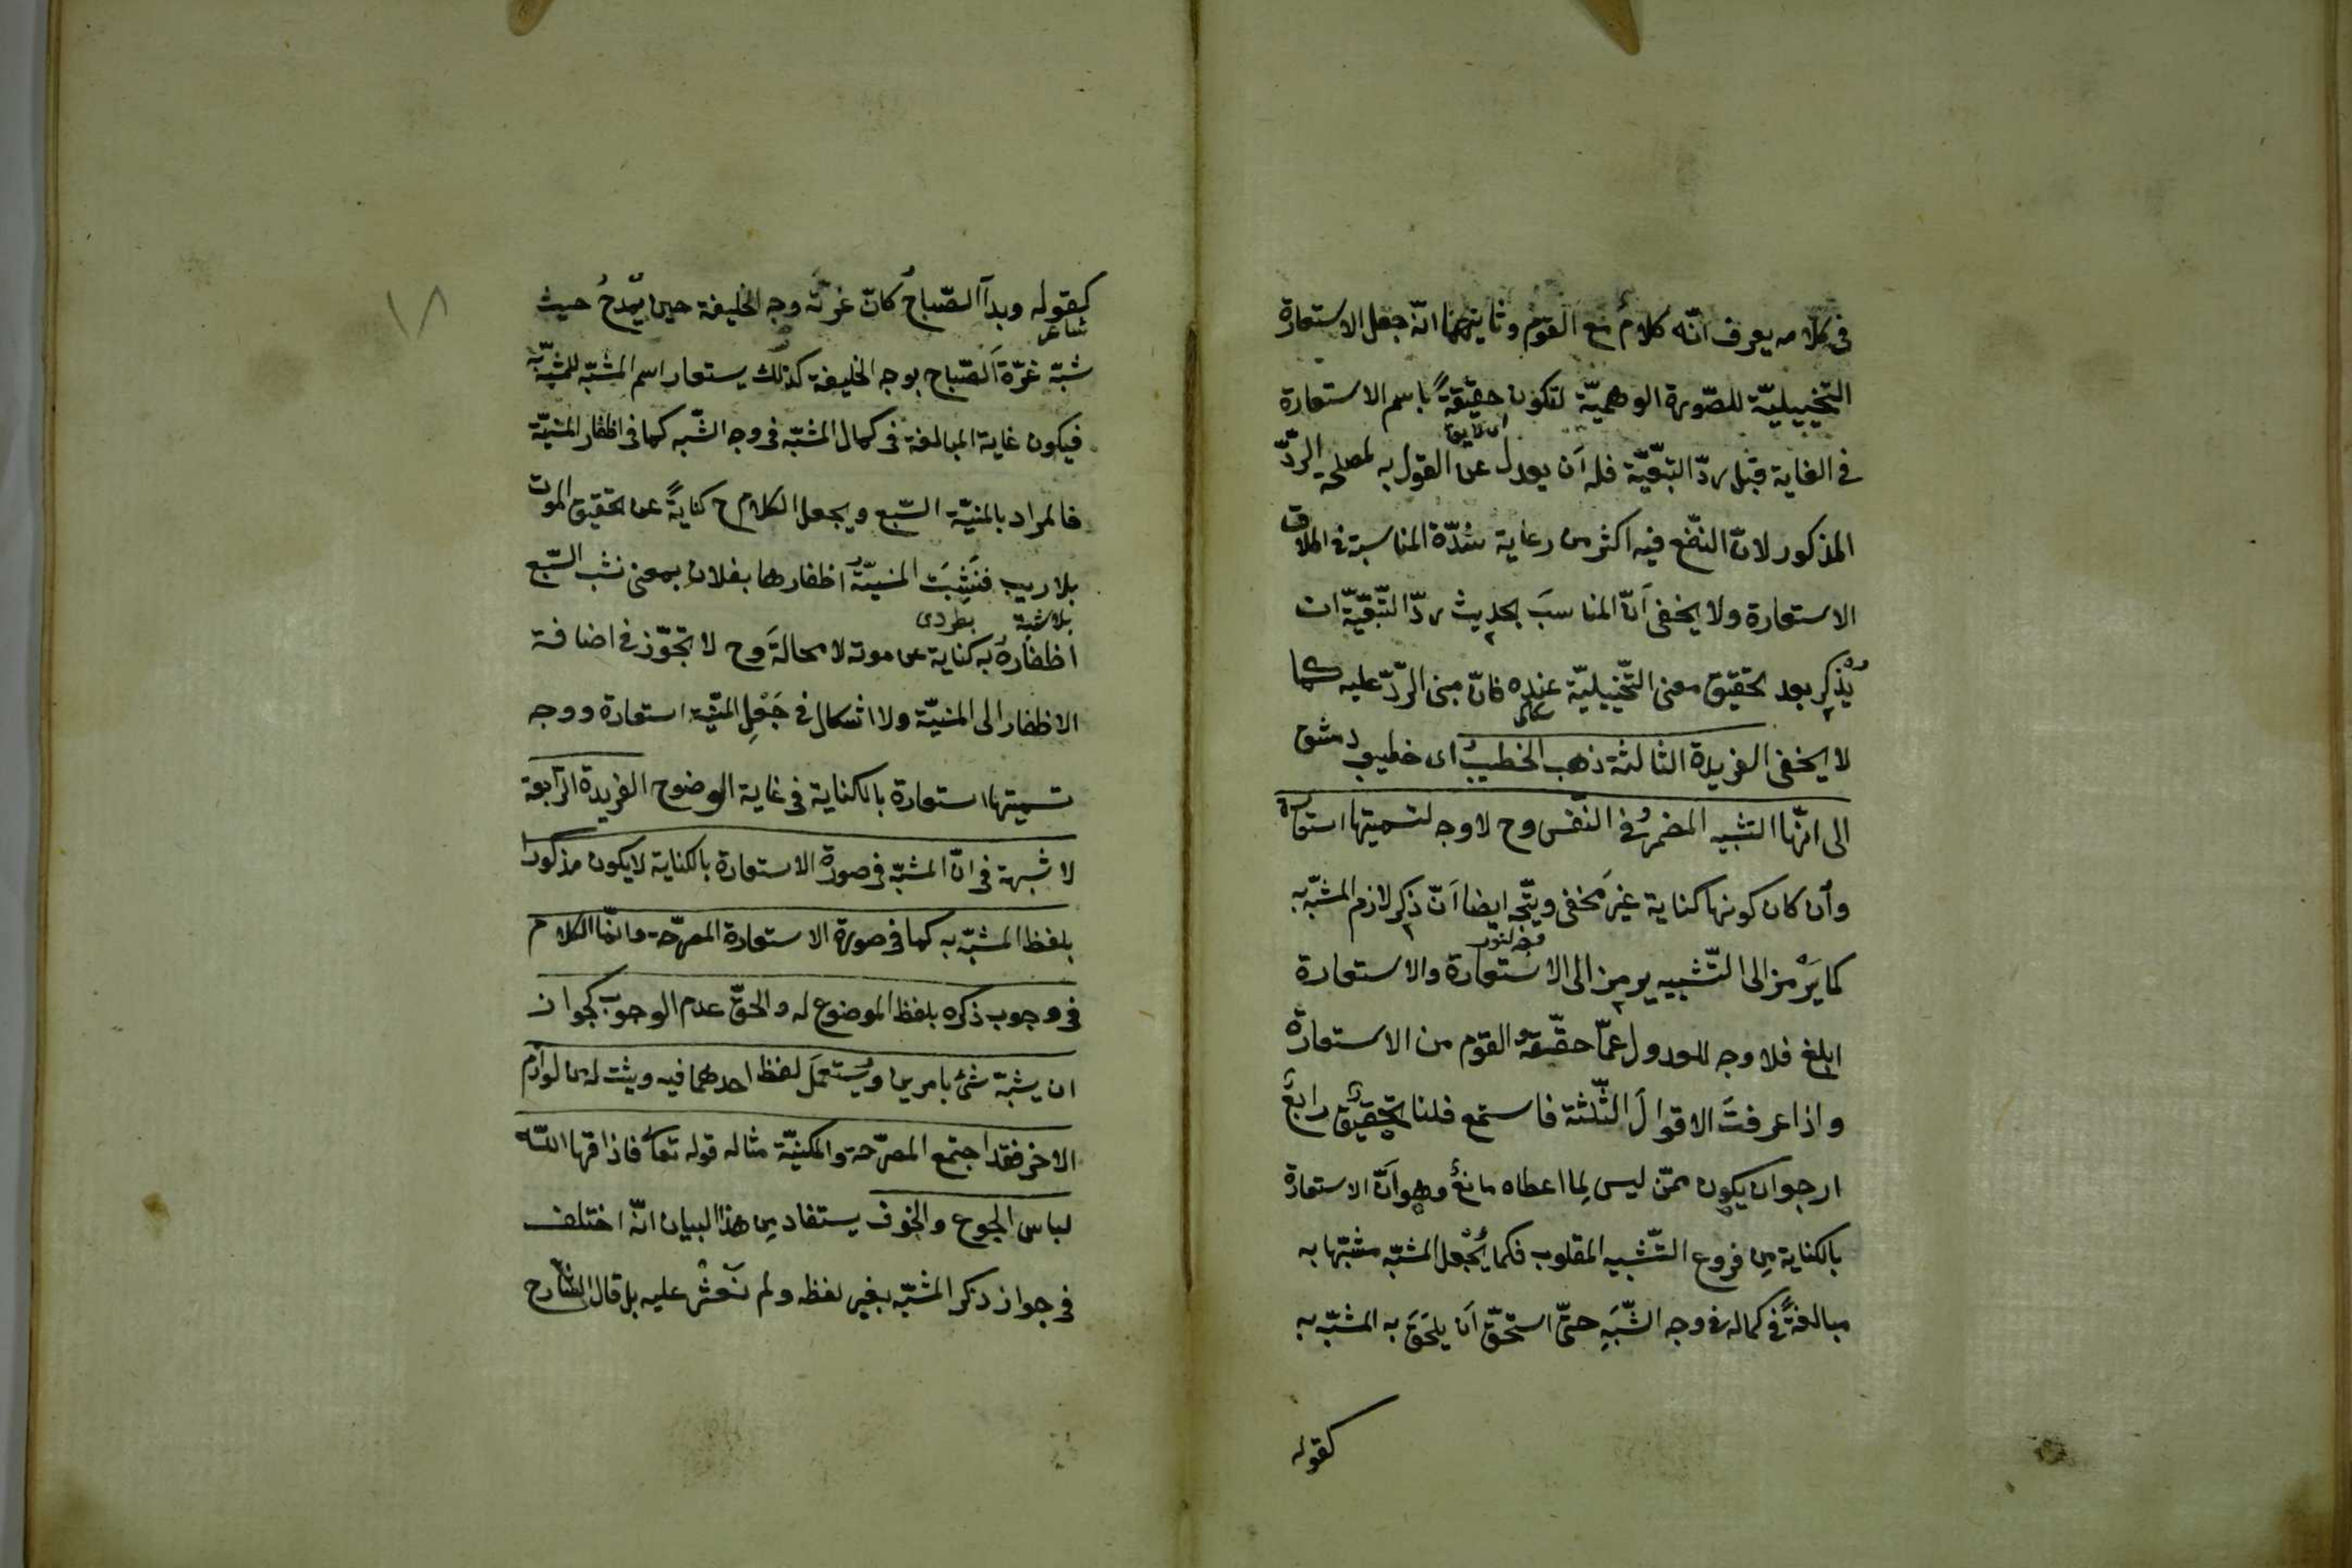 في كلامه يعرف انّه كلامٌ مع القوم وثانيهما انّه جعل الاستعارة
التخييليّة للصّورة الوهميّة لتكون حقيقةً باسم الاستعارة
في الغاية قبل ردّ التبعيّة فله اَن يعدل عن القول به لمصلحة الردّ
المذكور لانّ النفع فيه اكثر من رعاية شدّة المناسبة في اطلاق
الاستعارة ولا يخفى اَنّ المناسبَ بحديث ردّ التّبعيّة ان
يُذكر بعد تحقيق معنى التّخييليّة عنده فانّ مبنى الردّ عليه كما
لا يخفى الفريدة الثالثة ذهب الخطيبُ اى خطيب دمشق
الى انّها التشبيه المضمرُ في النّفس وح لا وجه لتسميتها استعارة
وأن كان كونها كناية غيرَ مخفى ويتّجه ايضا اَنّ ذكر لازم المشبّه به
كما يَرْمز الى التّشبيه يرمز الى الاستعارة والاستعارة
ابلغ فلا وجه للعدول عمّا حقّقه القوم من الاستعارة
واذا عرفتَ الاقوالَ الثّلثة فاستمع فلنا تحقيقٌ رابعٌ
ارجو ان يكون ممّن ليس لِما اعطاه مانعٌ وهو اَنّ الاستعارة
بالكناية مِن فروع التّشبيه المقلوب فكما يُجْعل المشبّه مشبّها به
مبالغةً في كماله في وجه الشّبَهِ حتّى استحقّ اَن يلحَق به المشبّه به
كقوله
١٨
كقوله وبدا الصّباحُ كانّ غرّتَه وجه الخليفة حين يُمْدحُ حيث
شاعر
شبّه غرّة الصّباح بوجه الخليفة كذلك يستعار اسم المشبّه للمشبّه به
فيكون غاية المبالغة في كمال المشبّه في وجه الشّبه كما في اظفار المنيّة
فالمراد بالمنيّة السّبع ويجعل الكلام ح كنايةً عن تحقيق الموت
بلا ريب فنَشِبَت المنيّةُ اظفارها بفلان بمعنى نشب السّبع
بلا شبهة
اظفارَه به كناية عن موته لا محالةَ وح لا تجوّز في اضافة
الاظفار الى المنيّة ولا اشكال في جَعْلِ المنيّة استعارة ووجه
تسميتها استعارة بالكناية في غاية الوضوح الفريدة الرّابعة
لا شبهة في انّ المشبّه في صورة الاستعارة بالكناية لا يكون مذكورا
بلفظ المشبّه به كما في صورة الاستعارة المصرّحة وانّما الكلام
في وجوب ذكره بلفظ الموضوع له والحقّ عدم الوجوب لجواز
ان يشبّه شئ بامرين ويُستعمَل لفظ احدهما فيه ويثبت له من لوازم
الاخر فقد اجتمع المصرّحة والمكنيّة مثاله قوله تعا فاذاقها اللّه
لباس الجوع والخوف يستفاد مِن هذا البيان انّه اختلف
في جواز ذكر المشبّه بغير لفظه ولم نَعْثُر عليه بل قال الشّارح